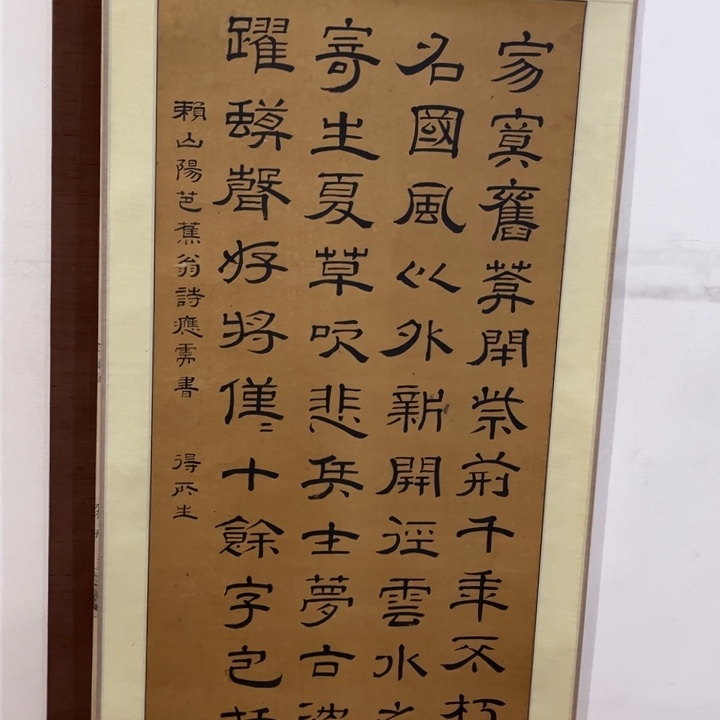 家寞舊葬閉柴荊千乘不朽
名國風以外新開徑雲水之
寄生夏草吹悲兵士夢古波
躍蟆聲好將僅〻十餘字包括
賴山陽芭蕉翁詩應需書 得所生